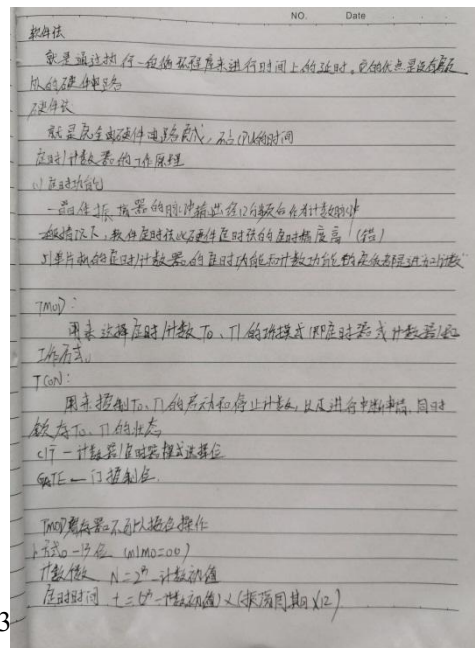 NO. Date
软件法
就是通过执行一段循环程序来进行时间上的延时。它的优点是没有额外的硬件电路
硬件法
就是完全由硬件电路完成，不占CPU的时间
定时/计数器的工作原理
(1)定时功能
一晶体振荡器的脉冲输出经12分频后作为计数脉冲
一般情况下，软件定时法比硬件定时法的定时精度高 (错)
单片机的定时/计数器的定时功能和计数功能
TMOD：
用来选择定时/计数T0、T1的工作模式(即定时器或计数器)和
工作方式。
TCON：
用来控制T0、T1的启动和停止计数，以及进行中断申请，同时
锁存T0、T1的状态
C/T — 计数器/定时器模式选择位
GATE — 门控制位
TMOD寄存器不可以按位操作
方式0-13位 (M1M0=00)
计数个数 N=2ⁿ-计数初值
定时时间 t=(2ⁿ-计数初值)×(振荡周期×12)
3